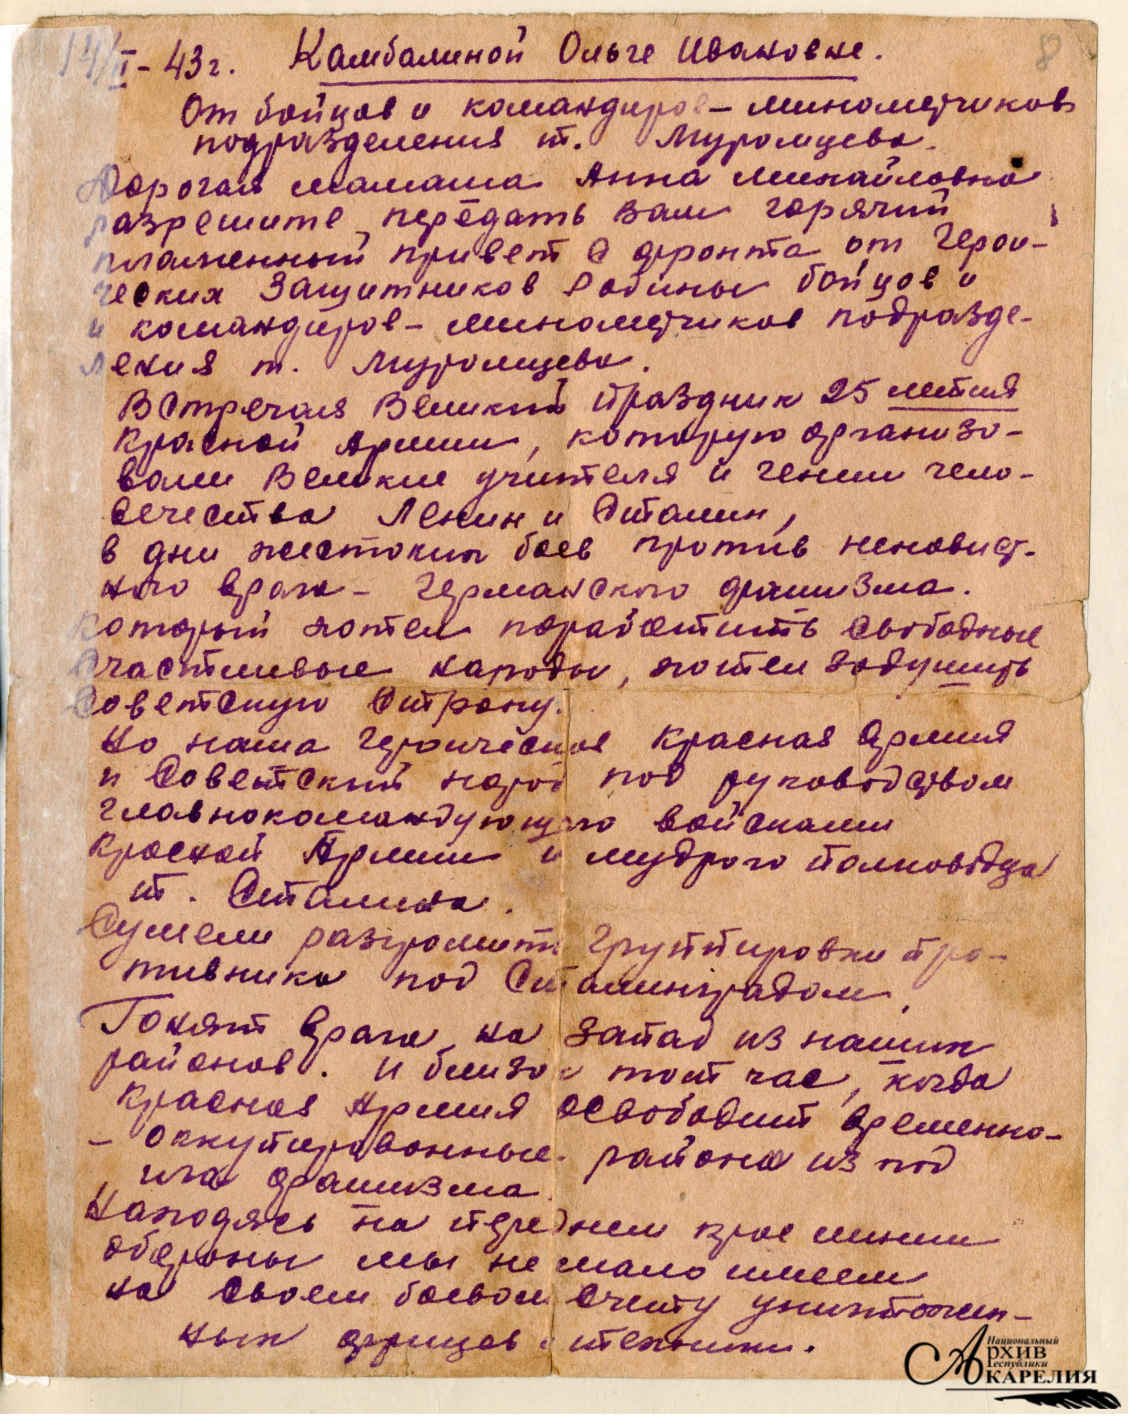 14/II-43г. Камбалиной Ольге Ивановне. 8
От бойцов и командиров-минометчиков
подразделения т. Муромцева.
Дорогая мамаша Анна Михайловна
разрешите передать Вам горячий
пламенный привет с фронта от герои-
ческих Защитников Родины бойцов и
и командиров-минометчиков подразде-
ления т. Муромцева.
Встречая Великий праздник 25 летия
Красной Армии, которую организо-
вали Великие учителя и гении чело-
вечества Ленин и Сталин,
в дни жестоких боев против ненавист-
ного врага - Германского фашизма.
Который хотел поработить свободные
Счастливые народы, хотел задушить
Советскую Страну.
Но наша героическая Красная Армия
и Советский народ под руководством
главнокомандующего войсками
Красной Армии и мудрого полководца
т. Сталина.
Сумели разгромить группировки про-
тивника под Сталинградом.
Гонят врага на запад из наших
районов. и близок тот час, когда
Красная Армия освободит временно-
- оккупированные районы из под
ига фашизма.
Находясь на переднем крае линии
обороны мы не мало имеем
на своем боевом счету уничтожен-
ных фрицев и техники.
Национальный
АРХИВ
Республики
КАРЕЛИЯ